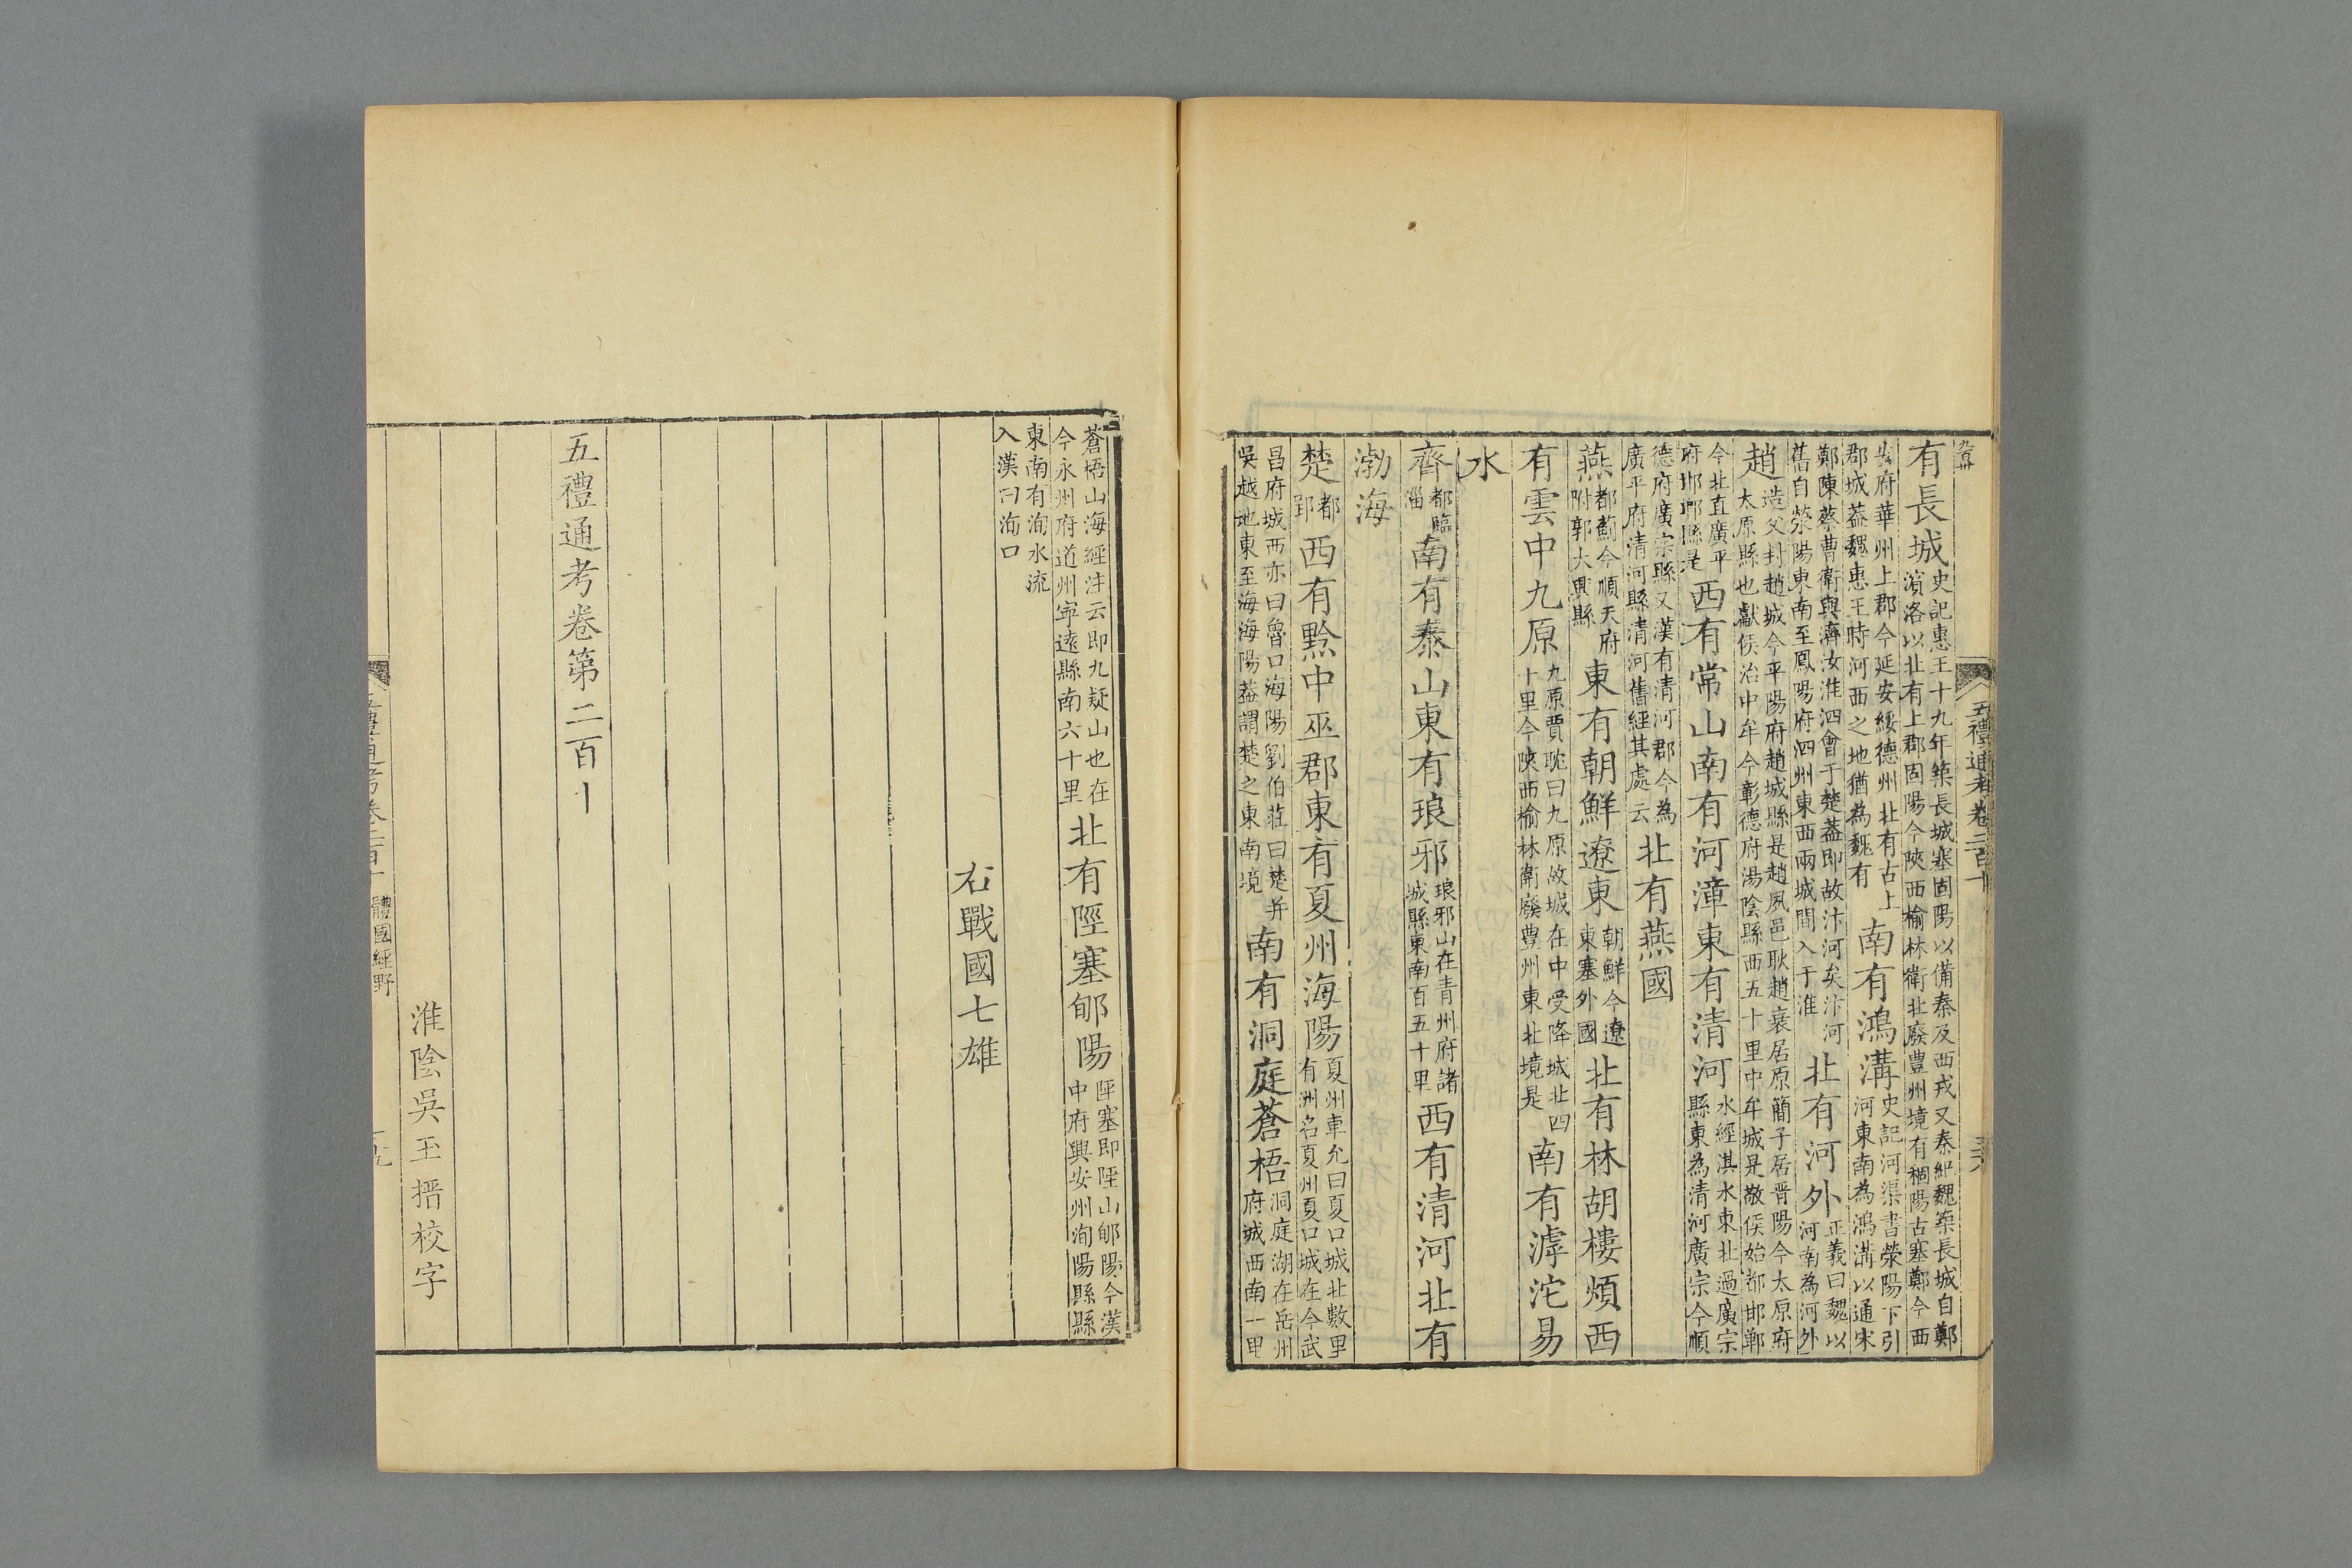 有長城史記惠王十九年築長城塞固陽以備秦及西戎又秦紀魏築長城自鄭
濱洛以北有上郡固陽今陝西榆林衛北廢豊州境有稒陽古塞鄭今西
安府華州上郡今延安綏德州北有古上
郡城葢魏惠王時河西之地猶為魏有南有鴻溝史記河渠書滎陽下引
河東南為鴻溝以通宋
鄭陳蔡曹衛與濟汝淮泗會于楚葢即故汴河矣汴河
舊自滎陽東南至鳳陽府泗州東西兩城間入于淮北有河外正義曰魏以
河南為河外
趙造父封趙城今平陽府趙城縣是趙夙邑耿趙衰居原簡子居晋陽今太原府
太原縣也獻侯治中牟今彰德府湯陰縣西五十里中牟城是敬侯始都邯鄲
今北直廣平
府邯鄲縣是西有常山南有河漳東有清河水經淇水東北過廣宗
縣東為清河廣宗今順
德府廣宗縣又漢有清河郡今為
廣平府清河縣清河舊經其處云北有燕國
燕都薊今順天府
附郭大興縣東有朝鮮遼東朝鮮今遼
東塞外國北有林胡樓煩西
有雲中九原九原賈耽曰九原故城在中受降城北四
十里今陝西榆林衛廢豊州東北境是南有滹沱易
水
齊都臨
淄南有泰山東有琅邪琅邪山在青州府諸
城縣東南百五十里西有清河北有
渤海
楚都
郢西有黔中巫郡東有夏州海陽夏州車允曰夏口城北數里
有洲名夏州夏口城在今武
昌府城西亦曰魯口海陽劉伯莊曰楚并
吳越地東至海海陽葢謂楚之東南境南有洞庭蒼梧洞庭湖在岳州
府城西南一里
五禮通考卷二百十
蒼梧山海經注云即九疑山也在
今永州府道州寕遠縣南六十里北有陘塞郇陽陘塞即陘山郇陽今漢
中府興安州洵陽縣縣
東南有洵水流
入漢曰洵口
右戰國七雄
五禮通考卷第二百十
淮陰吳玉搢校字
五禮通考卷二百十 體國經野